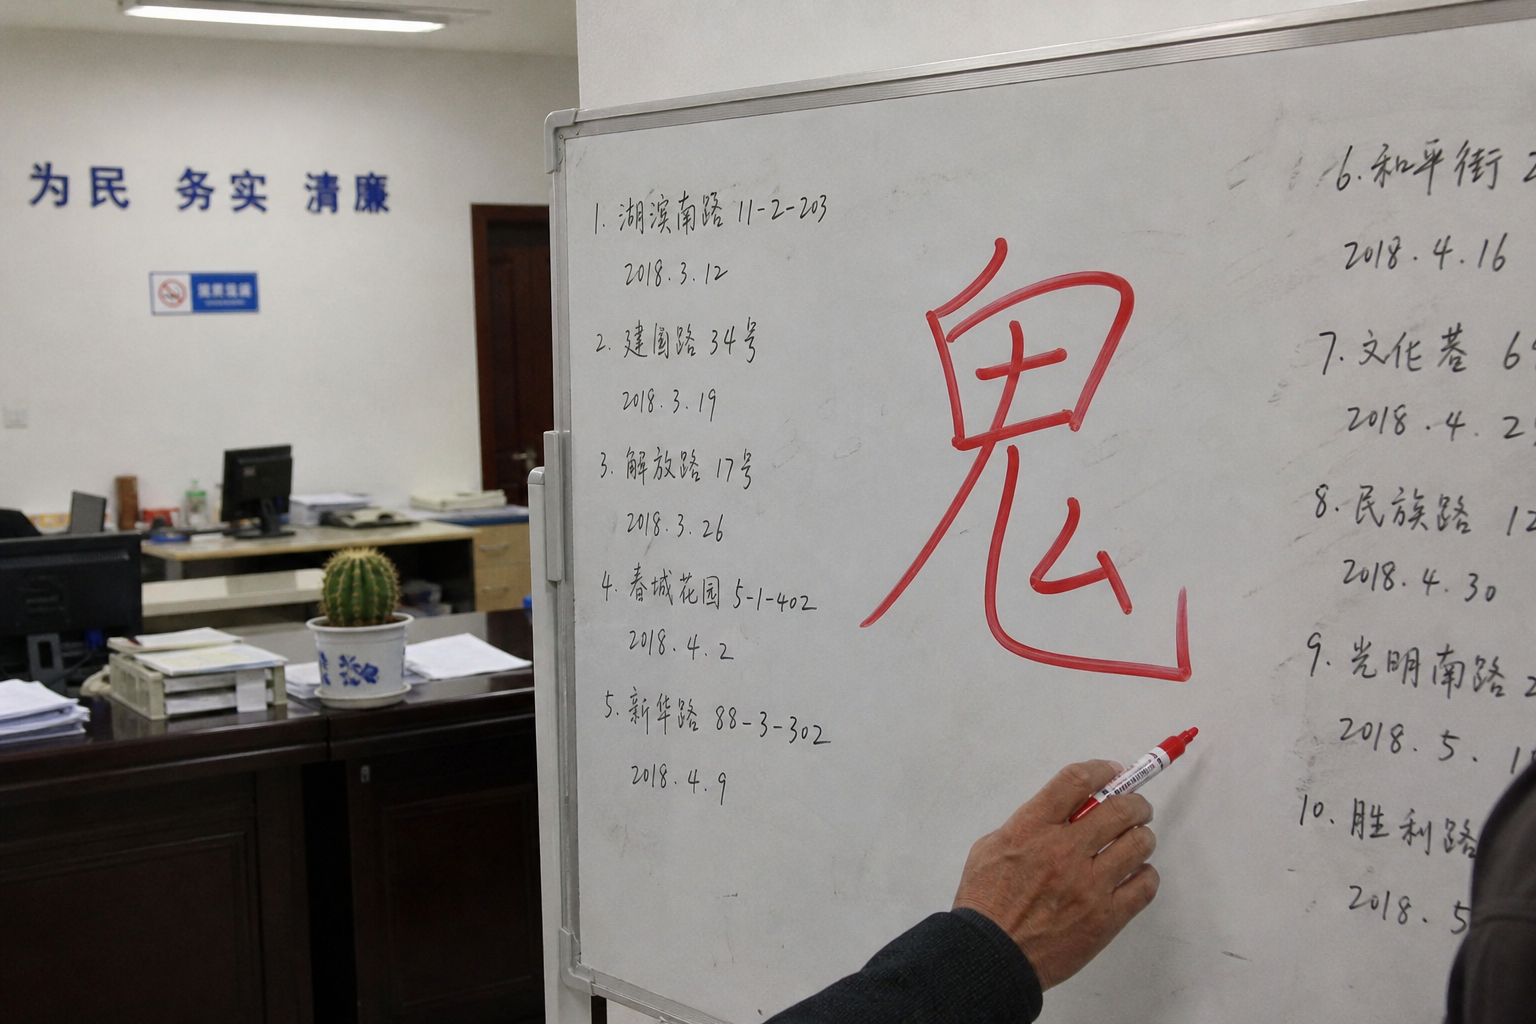 为民 务实 清廉
1. 湖滨南路 11-2-203
2018.3.12
2. 建国路 34号
2018.3.19
3. 解放路 17号
2018.3.26
4. 春城花园 5-1-402
2018.4.2
5. 新华路 88-3-302
2018.4.9
鬼
6. 和平街
2018.4.16
7. 文化巷 6
2018.4.2
8. 民族路 12
2018.4.30
9. 光明南路 2
2018.5.1
10. 胜利路
2018.5